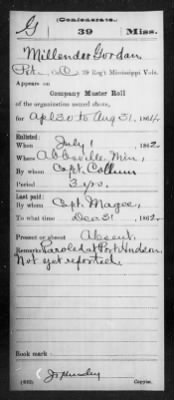 (Confederate.)
G 39 Miss.
Millender Gordan
Pvt., Co. , 39 Reg't Mississippi Vols.
Appears on
Company Muster Roll
of the organization named above,
for Apl 30 to Aug 31, 1864.
Enlisted:
When July 1, 1862
Where Abbeville, Miss,
By whom Capt. Collum
Period 3 yrs.
Last paid:
By whom Capt. Magee,
To what time Dec 31, 1862.
Present or absent Absent.
Remarks: Paroled at Port Hudson.
Not yet reported.
Book mark:
(642)
Copyist.